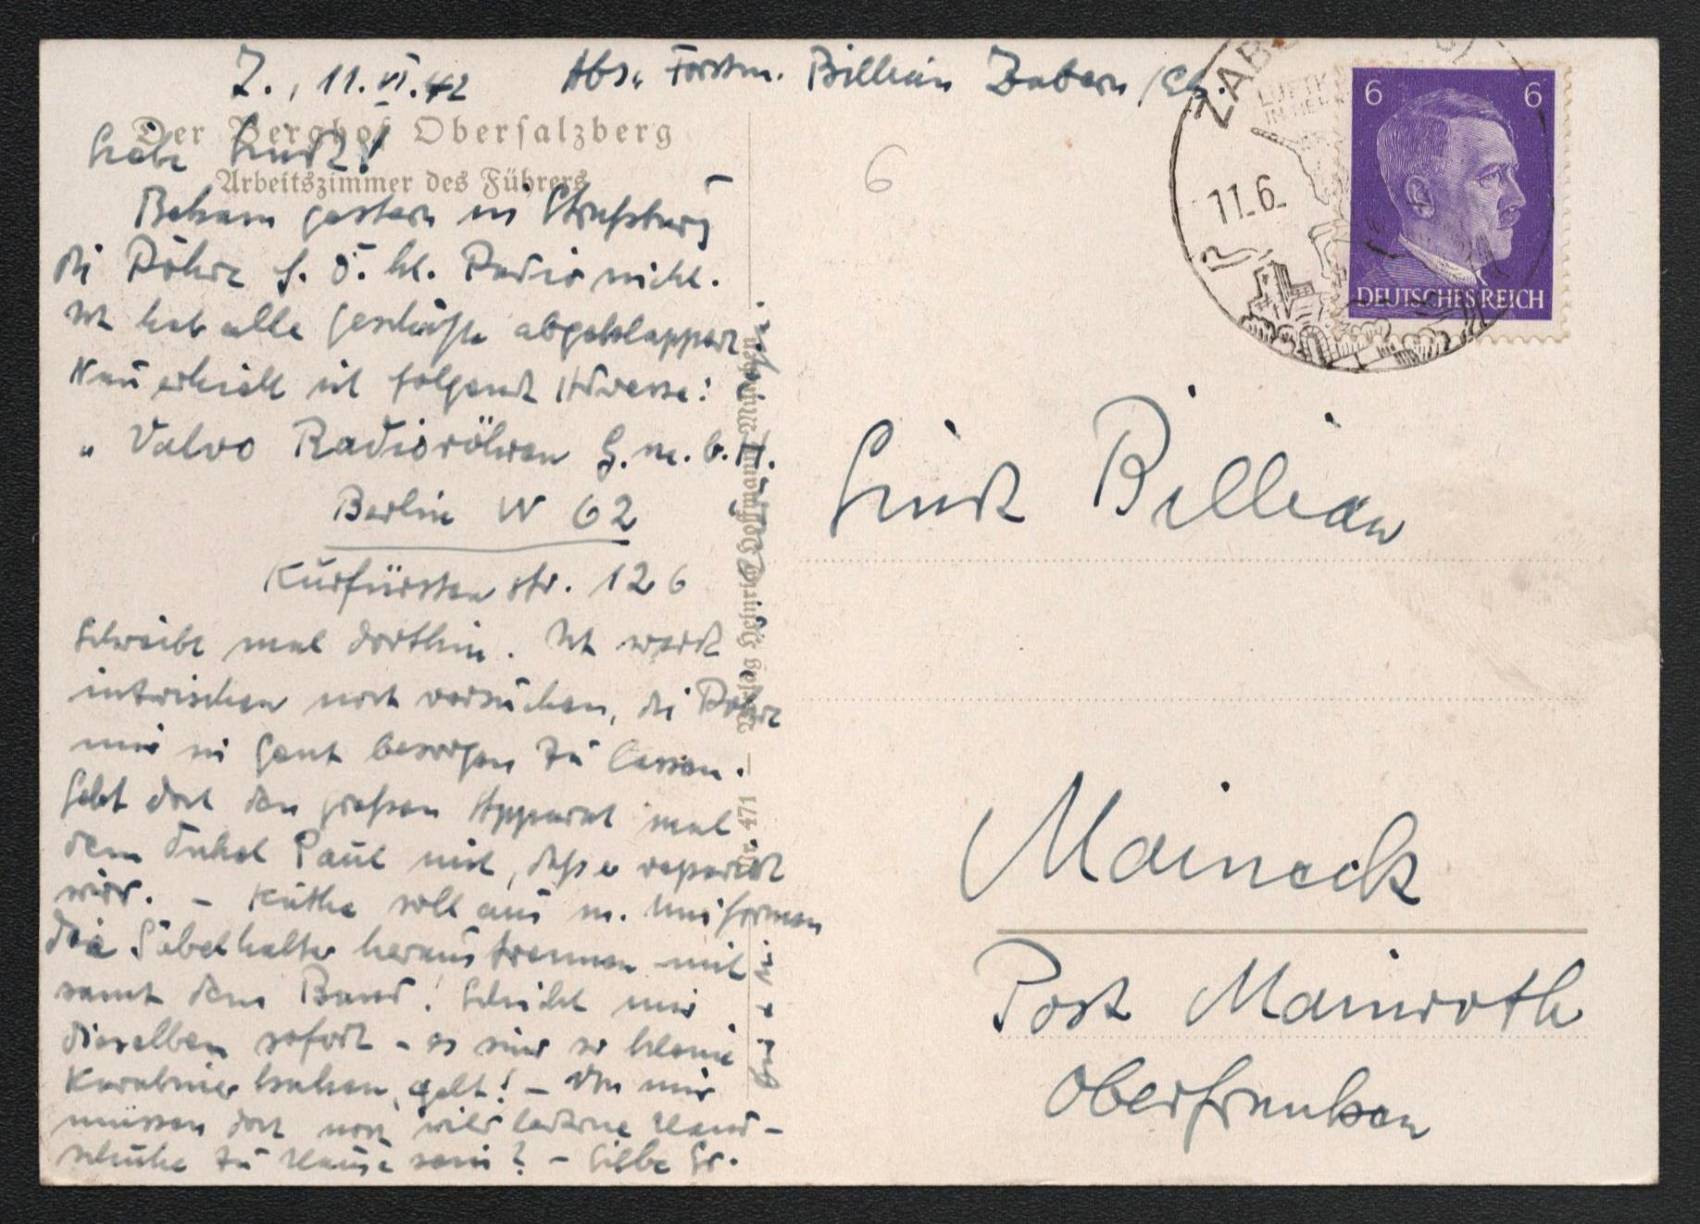 Z., 11.VI.42 Abs. Forstm. Billian Zabern /Els.
Der Berghof Obersalzberg
Arbeitszimmer des Führers
Liebe
Bekam gestern in Straßburg
die Röhre f. d. kl. Radio nicht.
Ich hab alle Geschäfte abgeklappert.
Nun erhielt ich folgende Adresse:
„ Valvo Radioröhren G.m.b.H.
Berlin W 62
Kurfürsten str. 126
Schreibe mal dorthin. Ich werde
inzwischen noch versuchen, die Röhre
mir in Gent besorgen zu lassen.
Gebt doch den großen Apparat mal
dem Onkel Paul mit, daß er repariert
wird. – Käthe soll aus m. Uniformen
die Säbelhalter heraustrennen mit
samt dem Band! Schickt mir
dieselben sofort – es sind so kleine
Karabinerhaken, gelt! – Von mir
müssen doch noch wild lederne Hand-
schuhe zu Hause sein? –
Nr. 471 – Verlag Heinrich Hoffmann, München
6
ZABERN
11.6.
6 6
DEUTSCHES REICH
Billian
Maineck
Post Mainroth
Oberfranken